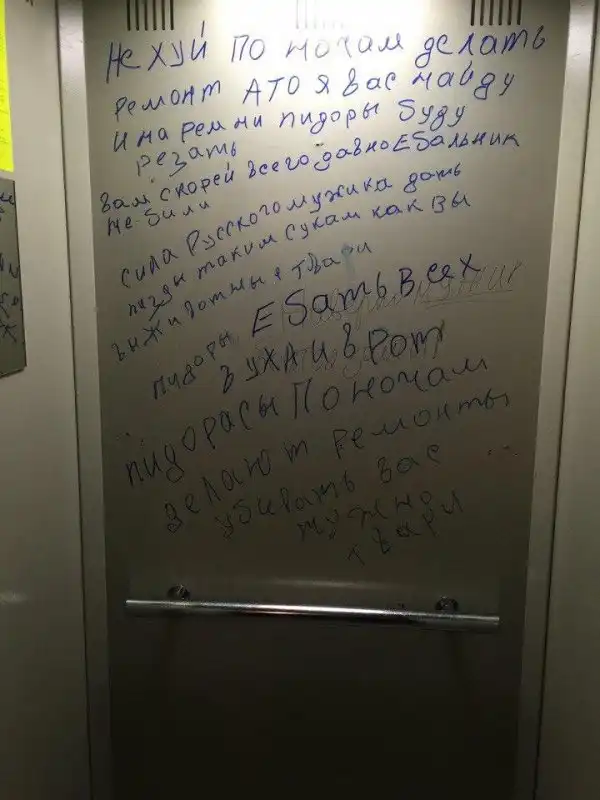 НЕ ХУЙ ПО НОЧАМ ДЕЛАТЬ
РЕМОНТ А ТО Я ВАС НАЙДУ
И НА РЕМНИ ПИДОРЫ БУДУ
РЕЗАТЬ
ВАМ СКОРЕЙ ВСЕГО ДАВНО ЕБАЛЬНИК
НЕ БИЛИ
СИЛА РУССКОГО МУЖИКА ДАТЬ
ПИЗДЫ ТАКИМ СУКАМ КАК ВЫ
ЖИВОТНЫЕ ТВАРИ
ПИДОРЫ ЕБАТЬ ВСЕХ
В УХА И В РОТ
ПИДОРАСЫ ПО НОЧАМ
ДЕЛАЮТ РЕМОНТЫ
УБИВАТЬ ВАС
НУЖНО
ТВАРИ